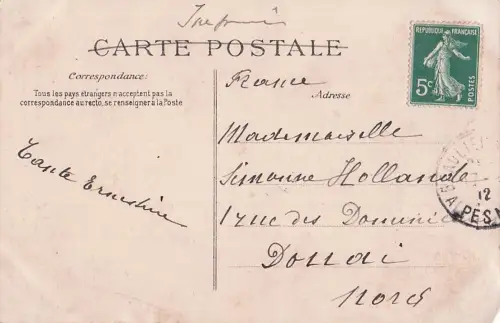 Imprimé
CARTE POSTALE
Correspondance:
Tous les pays étrangers n'acceptent pas la
correspondance au recto, se renseigner à la Poste
Tante Ernestine
France
Adresse
Mademoiselle
Simonne Hollande
1 rue des Dominic
Douai
Nord
REPUBLIQUE FRANÇAISE
5c
POSTES
BEAULIEU
12
ALPES M